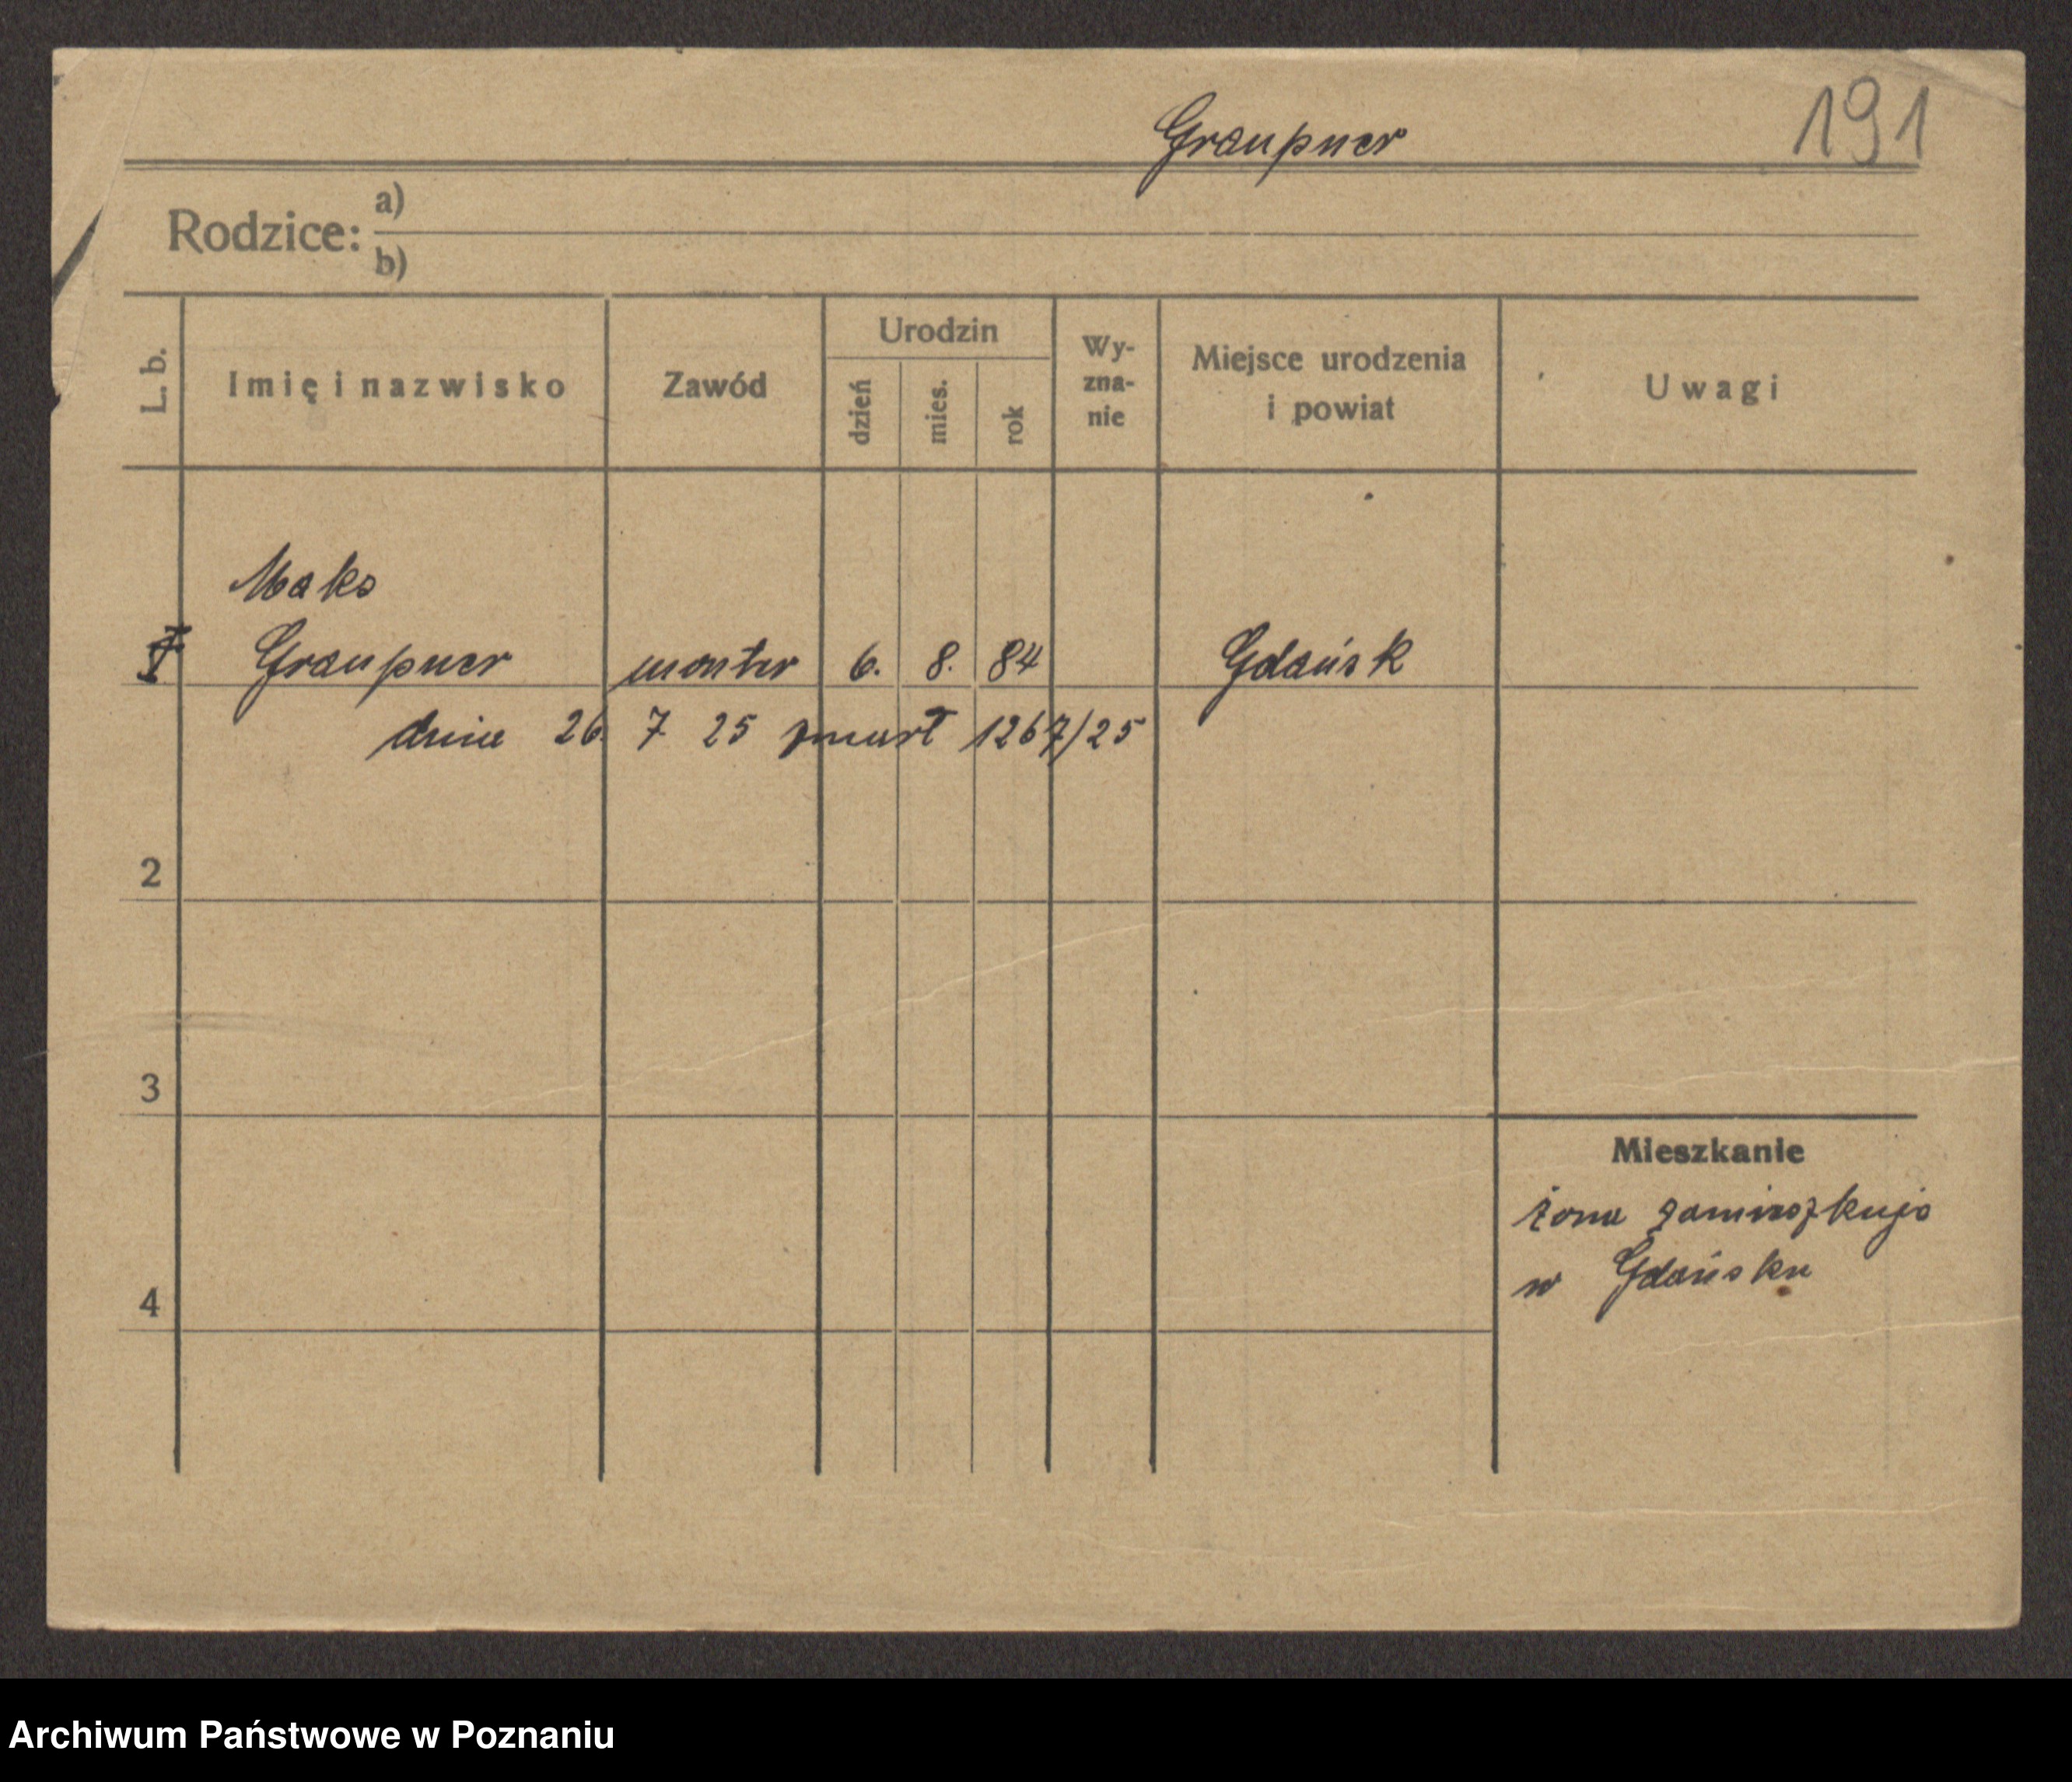 Graupner 191
Rodzice: a)
b)
L. b. Imię i nazwisko Zawód Urodzin dzień mies. rok Wyznanie Miejsce urodzenia i powiat Uwagi
Maks
1 Graupner monter 6. 8. 84 Gdańsk
dnia 26. 7 25 zmarł 1267/25
2
3
Mieszkanie
żona zamieszkuje
w Gdańsku
4
Archiwum Państwowe w Poznaniu